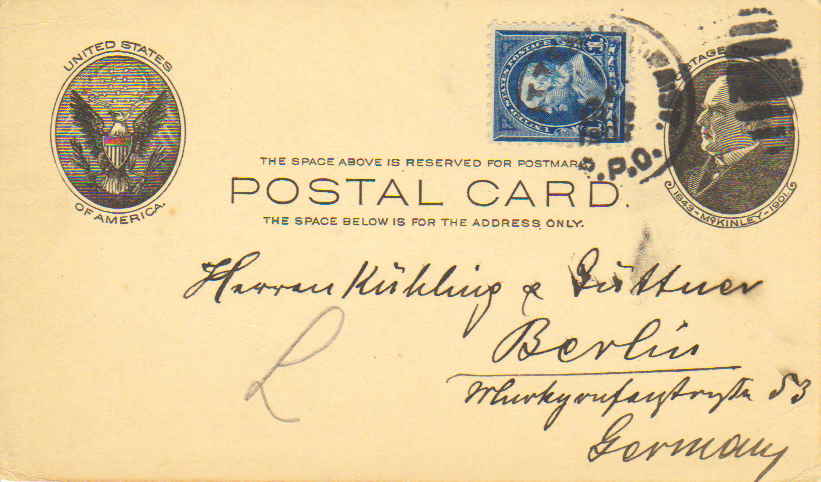 UNITED STATES
OF AMERICA.
THE SPACE ABOVE IS RESERVED FOR POSTMAR
POSTAL CARD.
THE SPACE BELOW IS FOR THE ADDRESS ONLY.
P.O.
1843-McKINLEY-1901
Herren Kühling & Güttner
Berlin
53
Germany